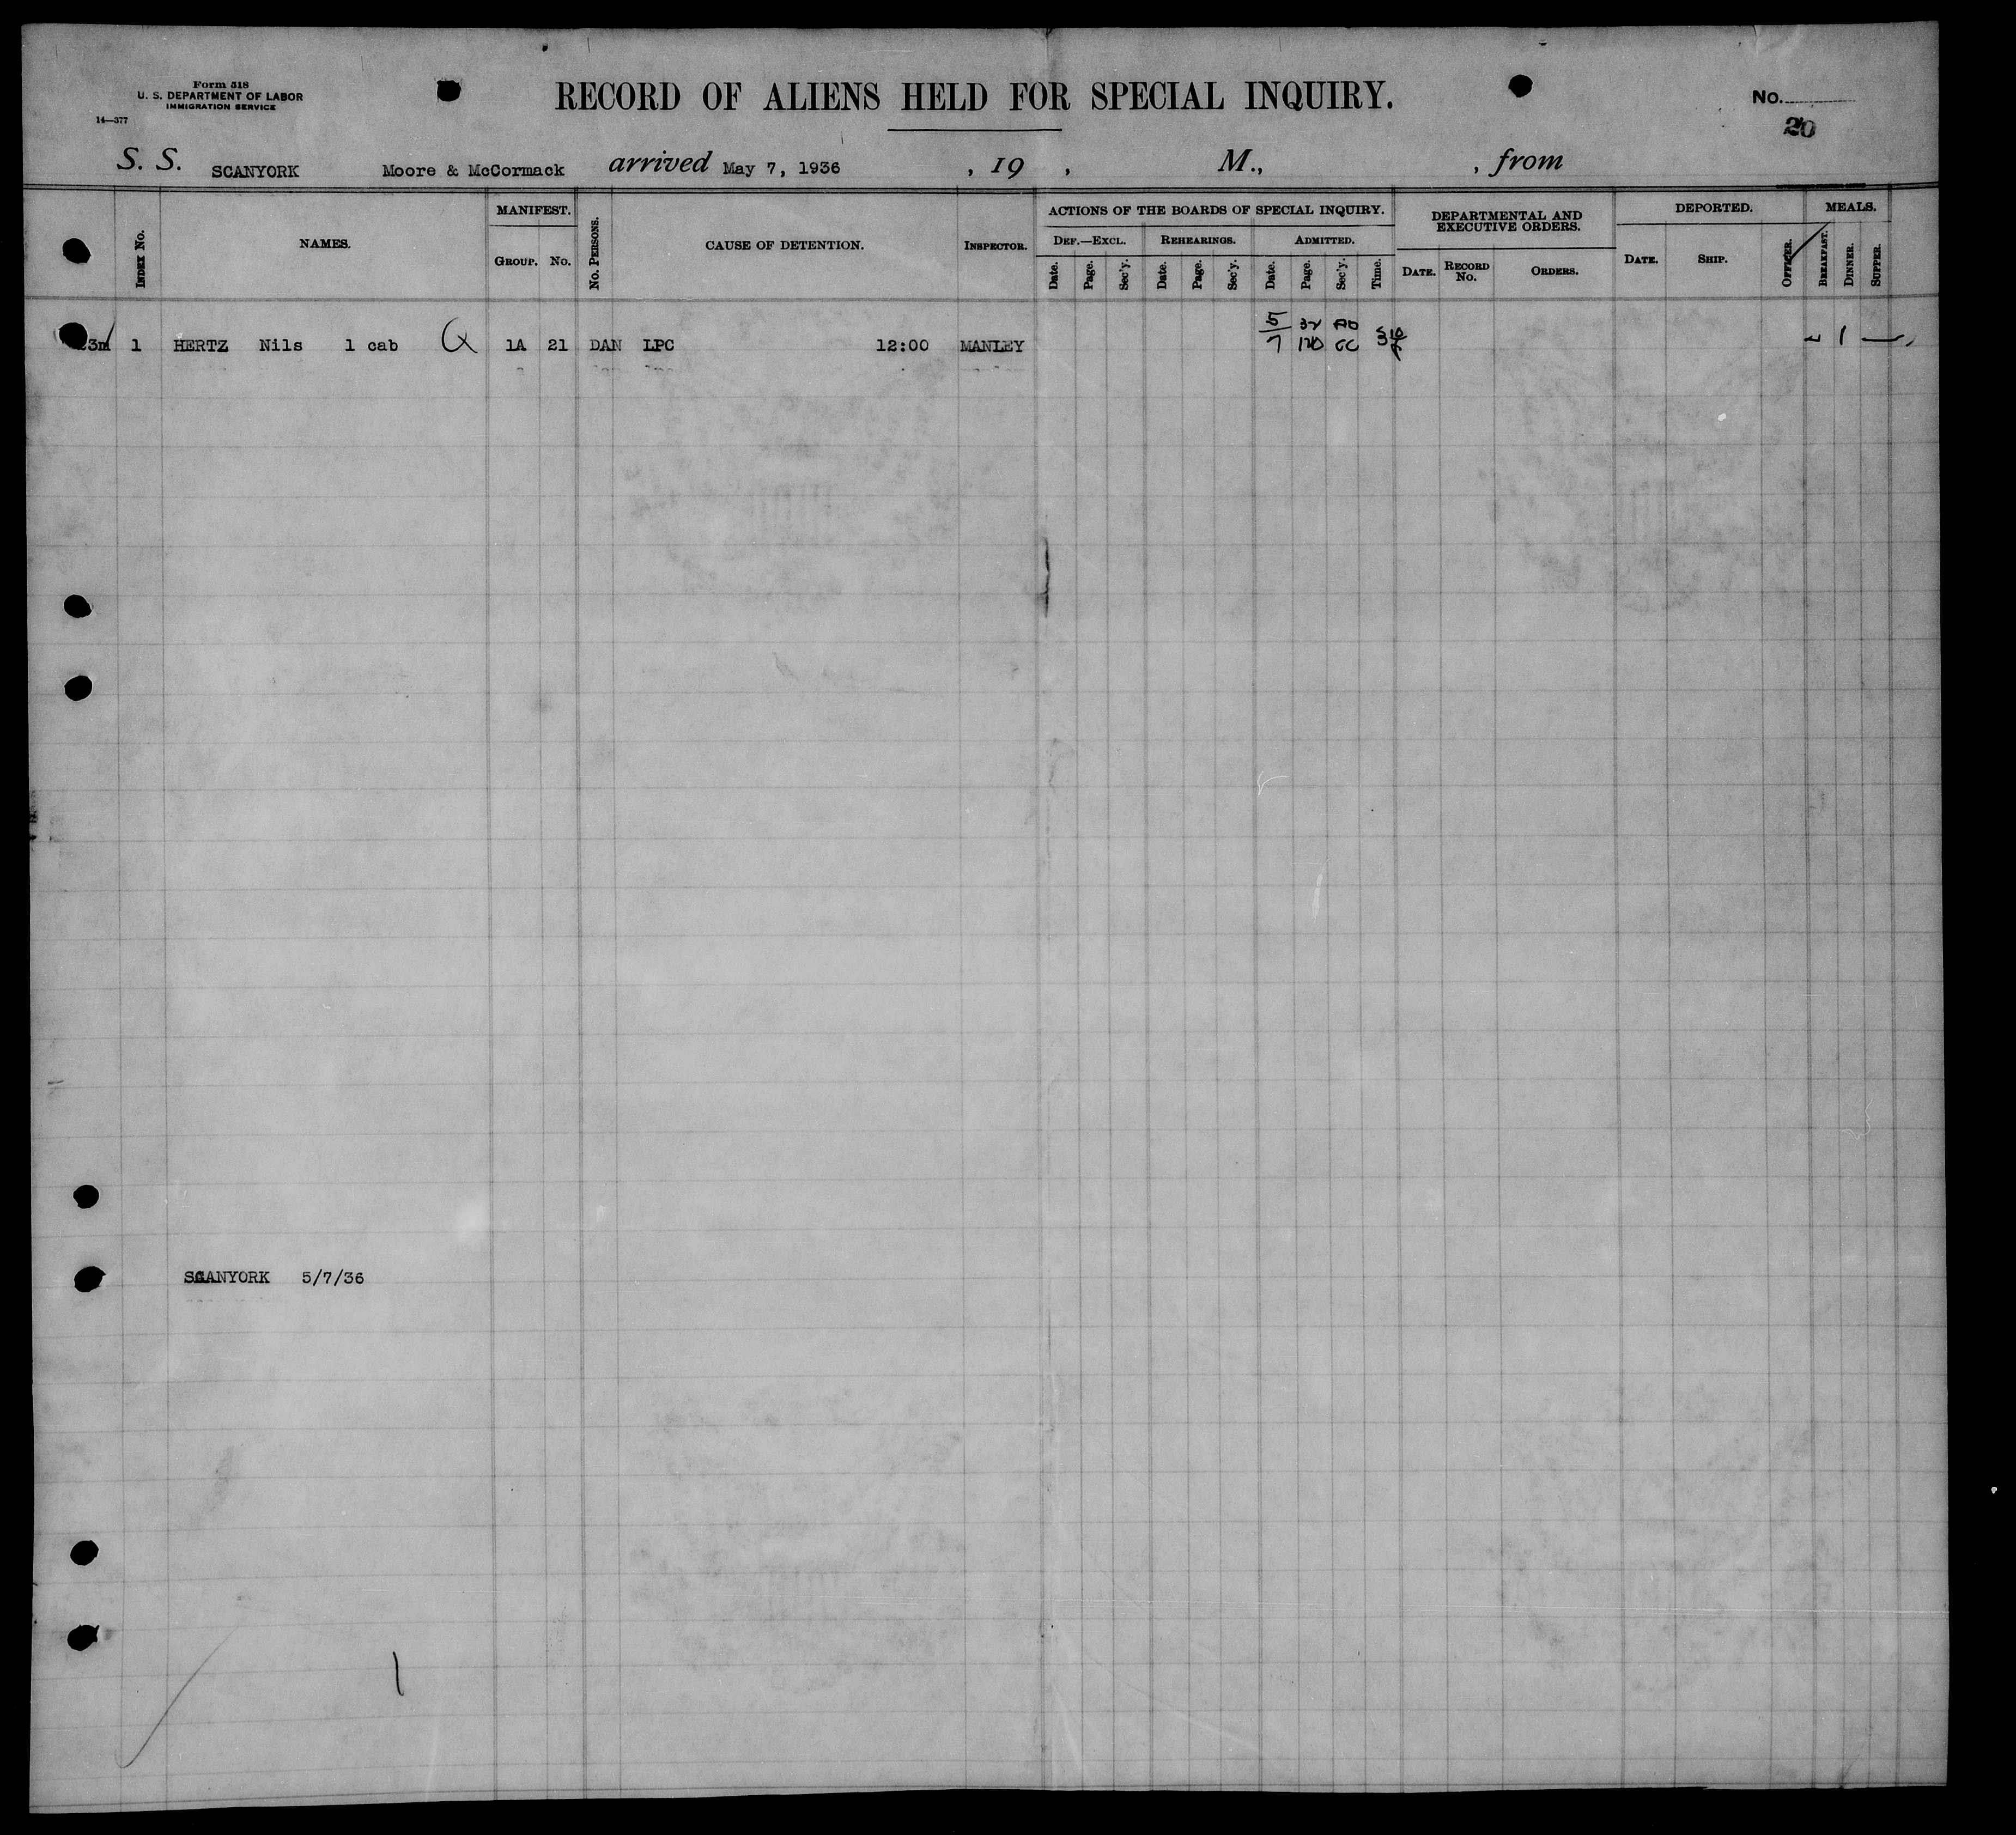 Form 518
U. S. DEPARTMENT OF LABOR
IMMIGRATION SERVICE
14—377
RECORD OF ALIENS HELD FOR SPECIAL INQUIRY.
No.
20
S. S. SCANYORK Moore & McCormack arrived May 7, 1936 , 19 , M., , from
INDEX No. NAMES. MANIFEST. GROUP. No. No. PERSONS. CAUSE OF DETENTION. INSPECTOR. ACTIONS OF THE BOARDS OF SPECIAL INQUIRY. DEF.—EXCL. Date. Page. Sec'y. REHEARINGS. Date. Page. Sec'y. ADMITTED. Date. Page. Sec'y. Time. DEPARTMENTAL AND EXECUTIVE ORDERS. DATE. RECORD No. ORDERS. DEPORTED. DATE. SHIP. OFFICER. MEALS. BREAKFAST. DINNER. SUPPER.
23m 1 HERTZ Nils 1 cab 1A 21 DAN LPC 12:00 MANLEY 5/7 1
SCANYORK 5/7/36
1